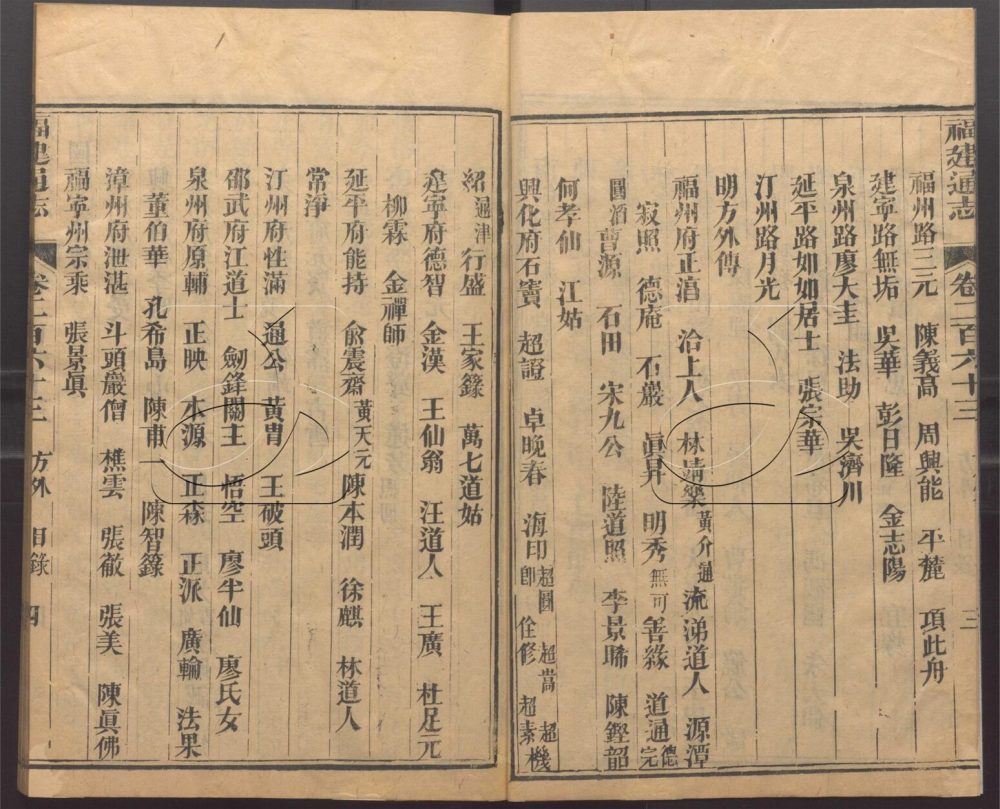 福建通志 卷二百六十三
福州路三元 陳義高 周興能 平麓 項此舟
建寧路無垢 吳華 彭日隆 金志陽
泉州路廖大圭 法助 吳濟川
延平路如如居士 張宗華
汀州路月光
明方外傳
福州府正㴞 洽上人 林靖樂 黃介通 流涕道人 源潭
寂照 德庵 石巖 眞昇 明秀 無可 善緣 道通 德完
圓酒 曹源 石田 宋九公 陸道照 李景晞 陳鏗韶
何孝仙 江姑
興化府石竇 超證 卓晚春 海印 超圓 超嵩 超機 郎 佺修 超素
紹 通津 行盛 王家錄 萬七道姑
建寧府德智 金漢 王仙翁 汪道人 王廣 杜足元
柳霖 金禪師
延平府能持 兪震齋 黃天元 陳本潤 徐麒 林道人
常淨
汀州府性滿 通公 黃胄 王破頭
邵武府江道士 劒鋒關主 悟空 廖半仙 廖氏女
泉州府原輔 正映 本源 正森 正派 廣輪 法果
董伯華 孔希島 陳甫一 陳智錄
漳州府泄湛 斗頭巖僧 樵雲 張徹 張美 陳眞佛
福寧州宗乘 張景眞
福建通志 卷二百六十三 方外 目錄 四